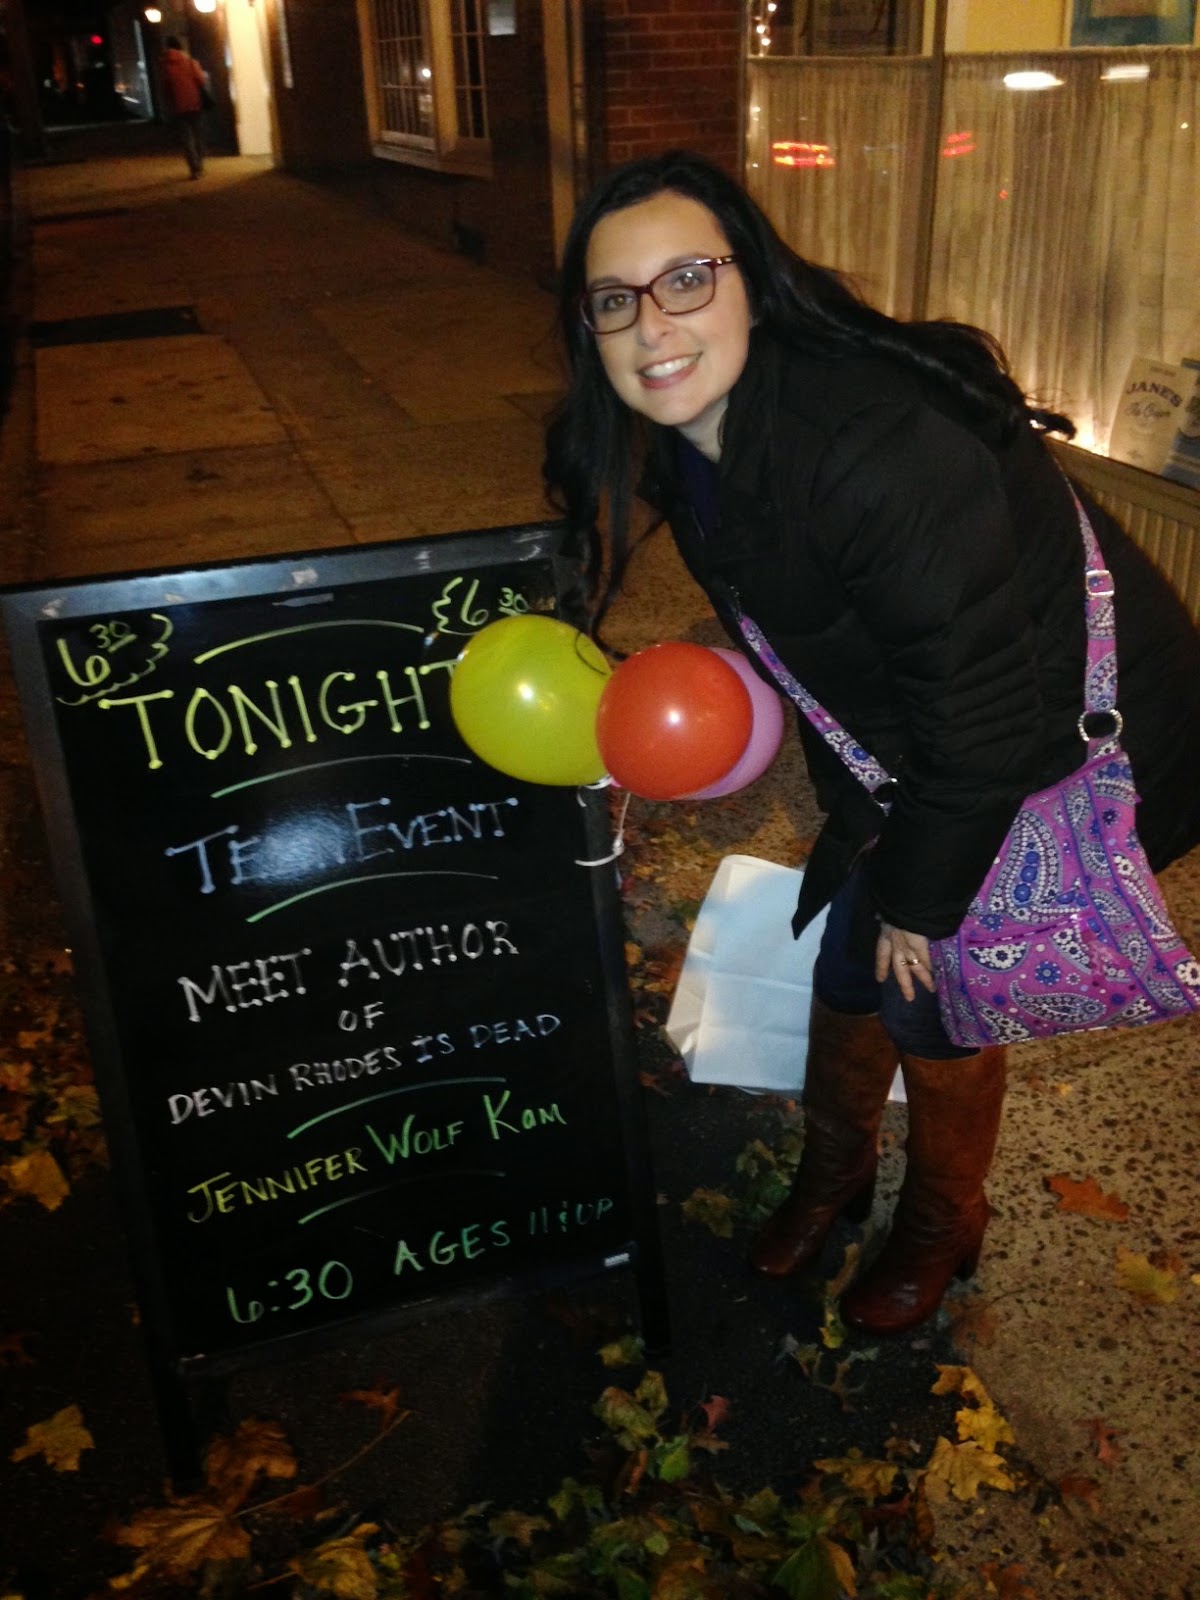 6 30
6 30
TONIGHT
TEEN EVENT
MEET AUTHOR
OF
DEVIN RHODES IS DEAD
JENNIFER WOLF KAM
6:30 AGES 11 & UP
JANE'S